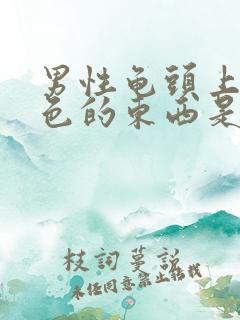 男性龟頭上
色的東西是
枝詞蔓説
未经同意禁止搭载